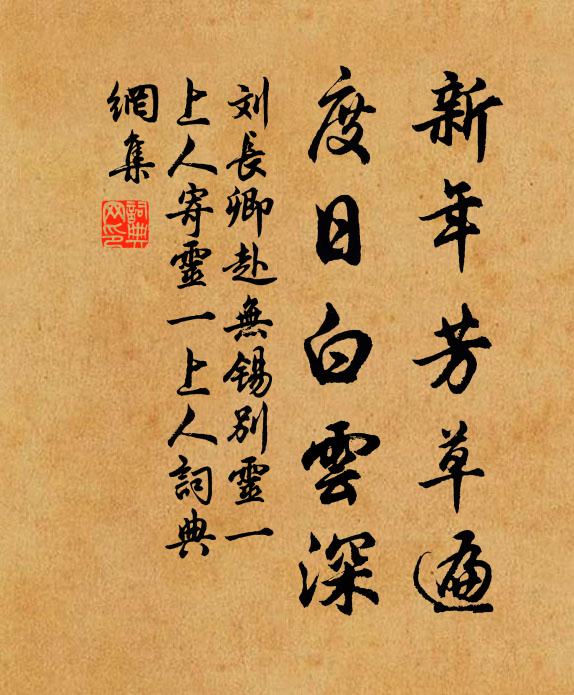 新年芳草遍
度日白雲深
刘長卿赴無锡别靈一
上人寄靈一上人詞典
網集
詞典
网印